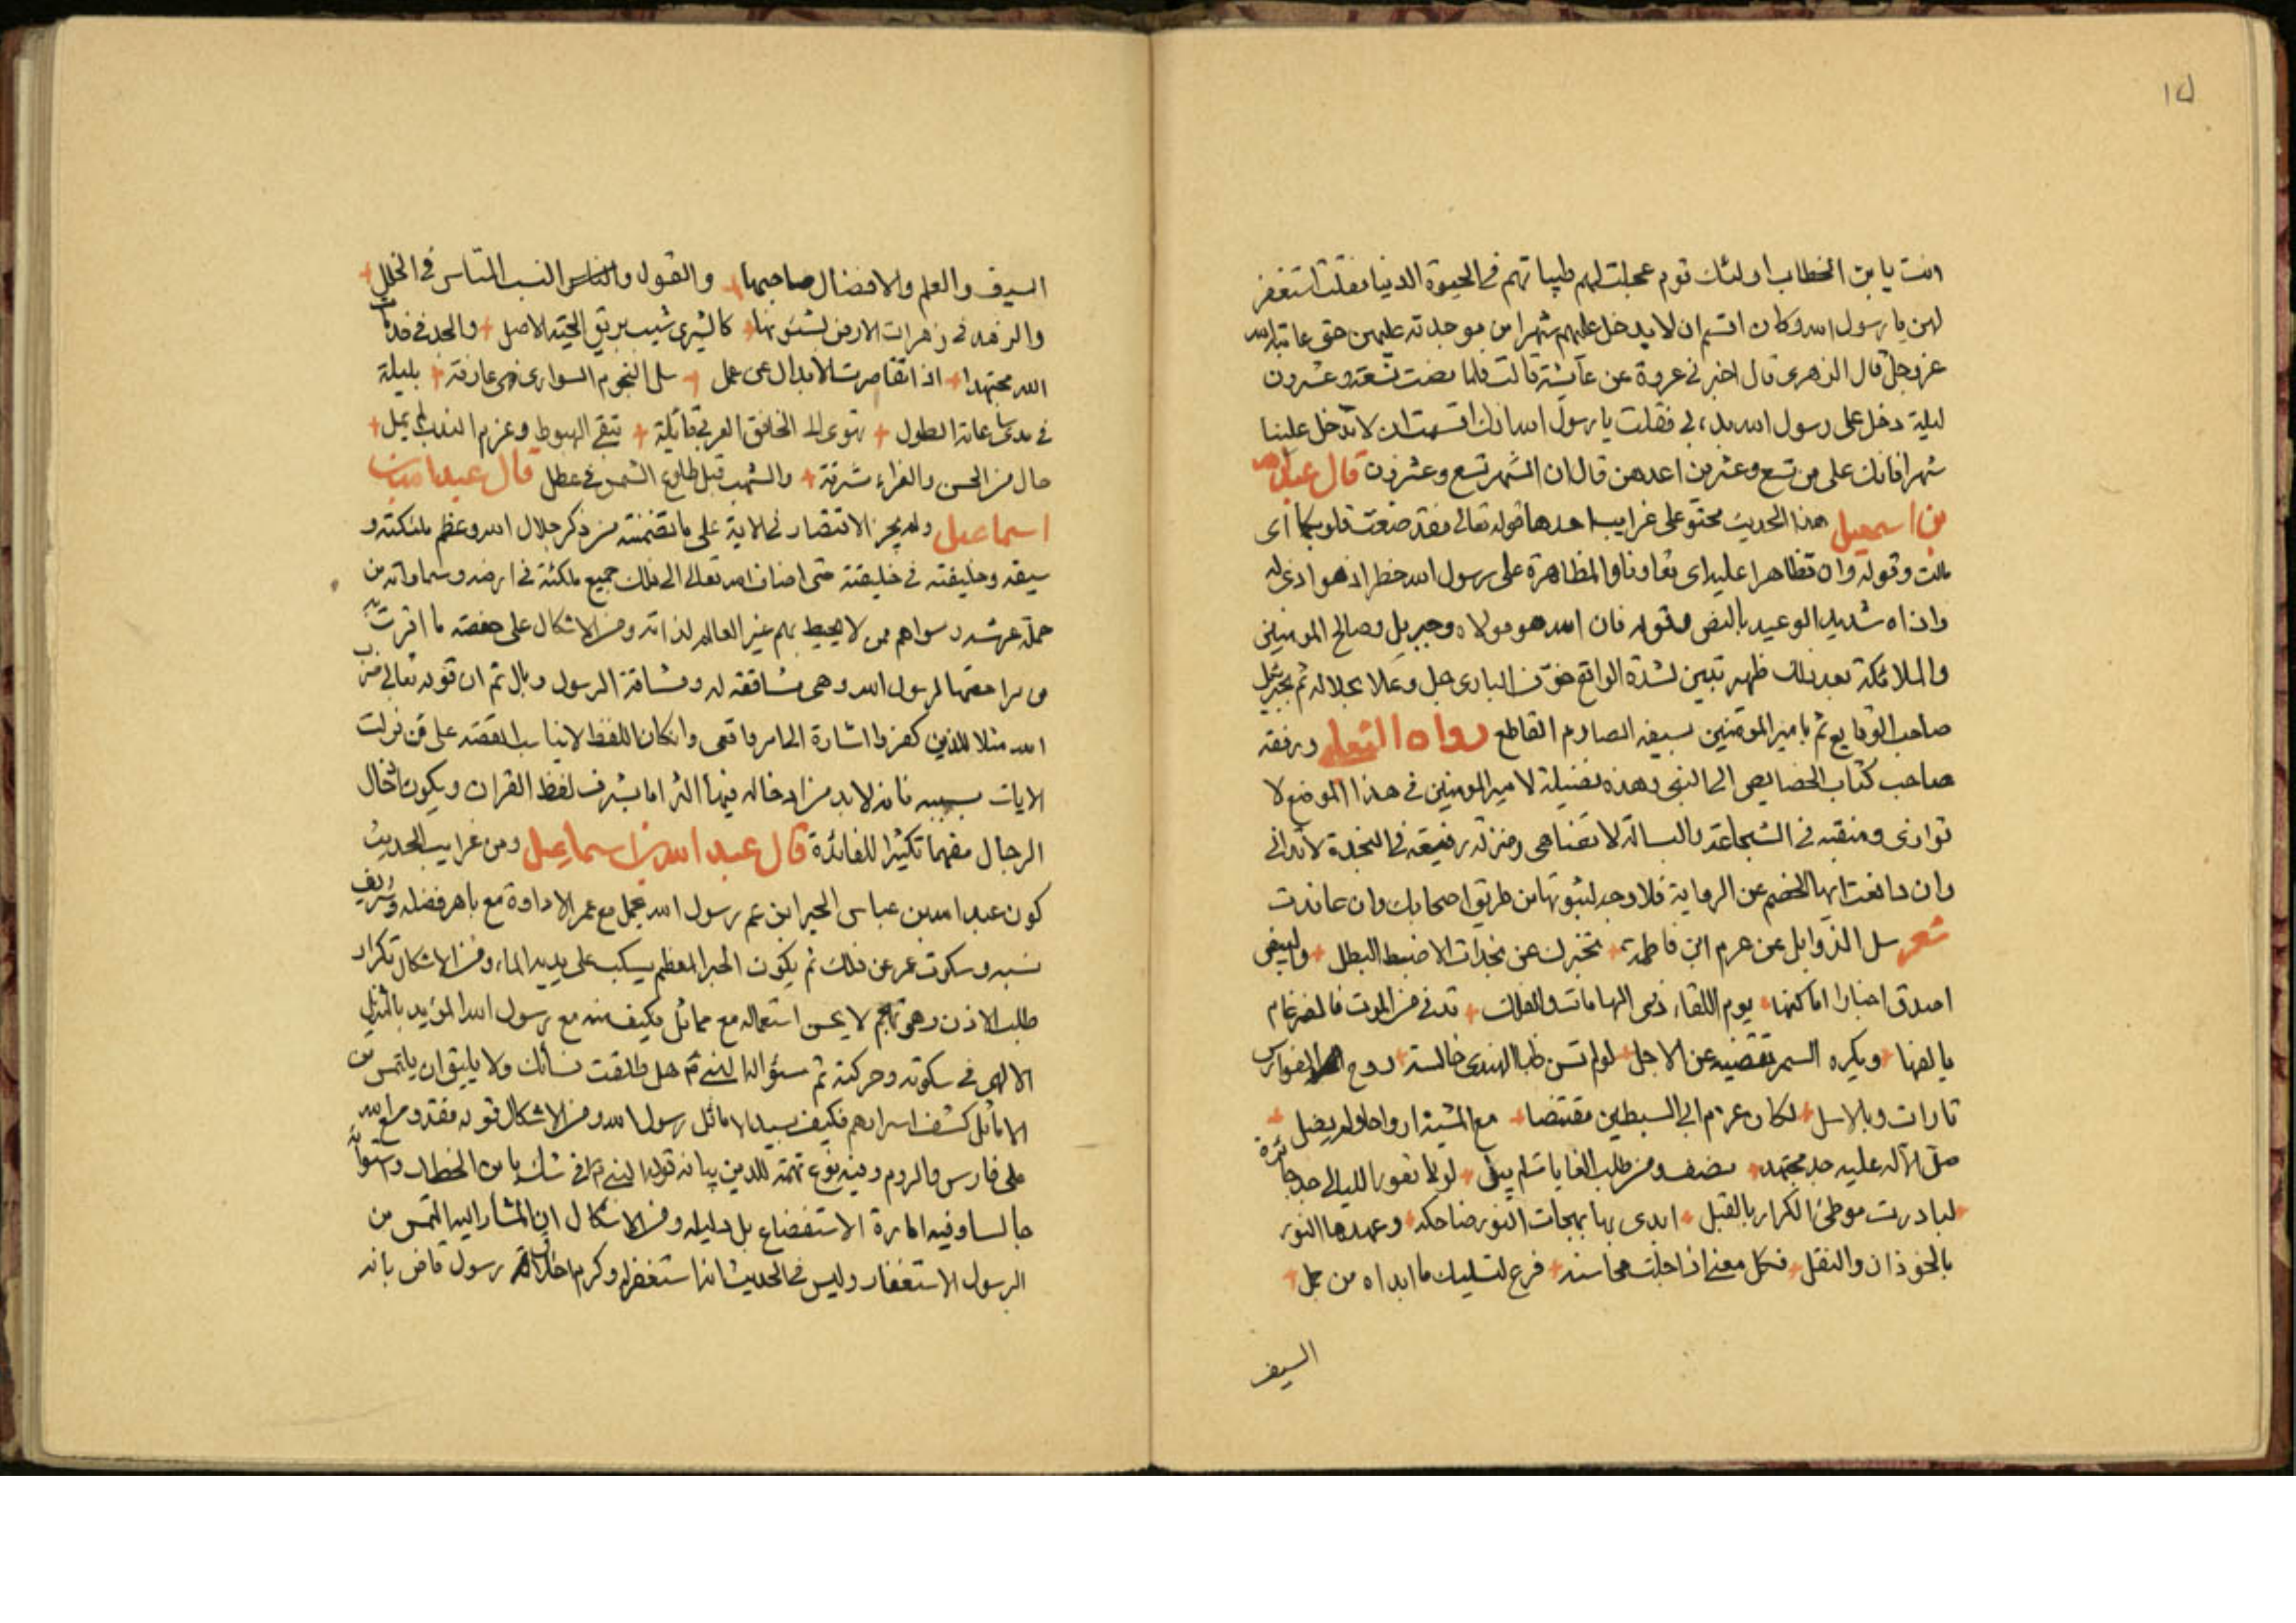 ١٥
انت يا بن الخطاب اولئك قوم عجلت لهم طيباتهم في الحيوة الدنيا فقلت استغفر
لهن يا رسول الله وكان اقسم ان لا يدخل عليهم شهرا من موجدته عليهن حتى عاتبه الله
عز وجل قال الزهرى قال اخبرنى عروة عن عآيشة قالت فلما مضت تسعة وعشرون
ليلة دخل على رسول الله بدا بي فقلت يا رسول الله انك اقسمت ان لا تدخل علينا
شهرا فانك على من تسع وعشرين اعدهن قال ان الشهر تسع وعشرون قال عبدالله
بن اسمعيل هذا الحديث محتو على غرايب احدها قوله تعالى فقد صغت قلوبكما اى
مالت وقوله وان تظاهرا عليه اى تعاونا والمظاهرة على رسول الله خطر اذ هو اذى له
واذاه شديد الوعيد بالنص وقوله فان الله هو مولاه وجبريل وصالح المومنين
والملائكة بعد ذلك ظهير تبين لشدة الواقع خوف البارى جل وعلا بجلاله ثم بجبرئيل
صاحب الوقايع ثم بامير المومنين بسيفه الصارم القاطع رواه الثعلبى ورفعه
صاحب كتاب الخصايص الى النبي وهذه فضيلة لامير المومنين في هذا الموضع لا
توازى ومنقبه في الشجاعة والبسالة لا تضاهى ومنزلة رفيعة في النجدة لا تدانى
وان دافعت ايها الخصم عن الرواية فلا وجه لثبوتها من طريق اصحابك وان عاندت
شعر سل الذوابل عن عزم ابن فاطمة تخبرك عن نجدات الاضبط البطل والبيض
اصدق اخبارا اماكنها يوم اللقاء ذى الهامات والقلل تدنى من الموت فالضرغام
يالفها ويكره السمر تقصيه عن الاجل لو لم تسن ظبا الهندى خالسة روح الفوارس
تارات وبالاسل لكان عزم ابي السبطين مقتنصا مع المشية ارواحا ولم يصل
صلى الاله عليه جد مجتهد من طلب الغايات لم ينل لو لم تفور الليالى حد جائزة
لبادرت موطئ الكرار بالقبل ابدى بها بهجات النور ضاحكه وعهدها النور
بالحوذان والنفل فكل معنى اذا جلت محاسنه فرع لتسليك ما ابداه من جمل
السيف
السيف والعلم والافضال صاحبها والقول والناس النسب المتاس في الخلل
والزهد في زهرات الارض بشئونها كالشرى شيب بريق الحية الاصل والجد في خدمات
الله مجتهدا اذا تقاصرت الابدال عن عمل سل النجوم السوارى فهى عارفة بليلة
في مدى ساعاته الطول تهوى الى الخافق الغربى قائلة تبقى الهبوط وعزم الندب لم يمل
حال من الحسن والغراء شرقة والشهب قبل طلوع الشمس في عطل قال عبد الله بن
اسماعيل ولم يجز الاقتصار في الاية على ما تضمنته من ذكر جلال الله وعظم ملئكته و
سيفه وخليفته في خليقته حتى اضاف الله تعالى الى ذلك جميع ملئكته في ارضه وسماواته من
حملة عرشه وسواهم ممن لا يحيط بهم غير العالم لذاته ومن الاشكال على حفصه ما اقرت به
من مراجعتها لرسول الله وهى مشاققه له ومشاقة الرسول وبال ثم ان قوله تعالى ضرب
الله مثلا للذين كفروا اشارة الى امر واقعى وان كان اللفظ لا يناسب القصه على من نزلت
الايات بسببه فانه لابد من ادخاله فيها اثرا اما بشرف لفظ القران ويكون ادخال
الرجال مفهما تكثيرا للفائدة قال عبد الله بن اسماعيل ومن غرايب الحديث
كون عبد الله بن عباس الحبر ابن عم رسول الله يحمل مع عمر الاداوة مع باهر فضله وشريف
نسبه وسكوت عمر عن ذلك ثم يكون الحبر المعظم يسكب على يديه الماء ومن الاشكال تكرار
طلب الاذن وهى تهجم لا يحسن استعماله مع مماثل فكيف منه مع رسول الله المؤيد بالتنزيل
الالهى في سكوته وحركته ثم سئواله النبى هل طلقت نسائك ولا يليق ان يلتمس من
الاماثل كشف اسرارهم فكيف سيد الاماثل رسول الله ومن الاشكال قوله فقد وسع الله
على فارس والروم وفيه نوع تهمة للدين بيانه قوله النبى افى شك يا بن الخطاب واستوائه
جالسا وفيه امارة الاستفضاع بل دليله ومن الاشكال ان المشار اليه التمس من
الرسول الاستغفار وليس في الحديث انه استغفر له وكرم اخلاق رسول قاض بانه